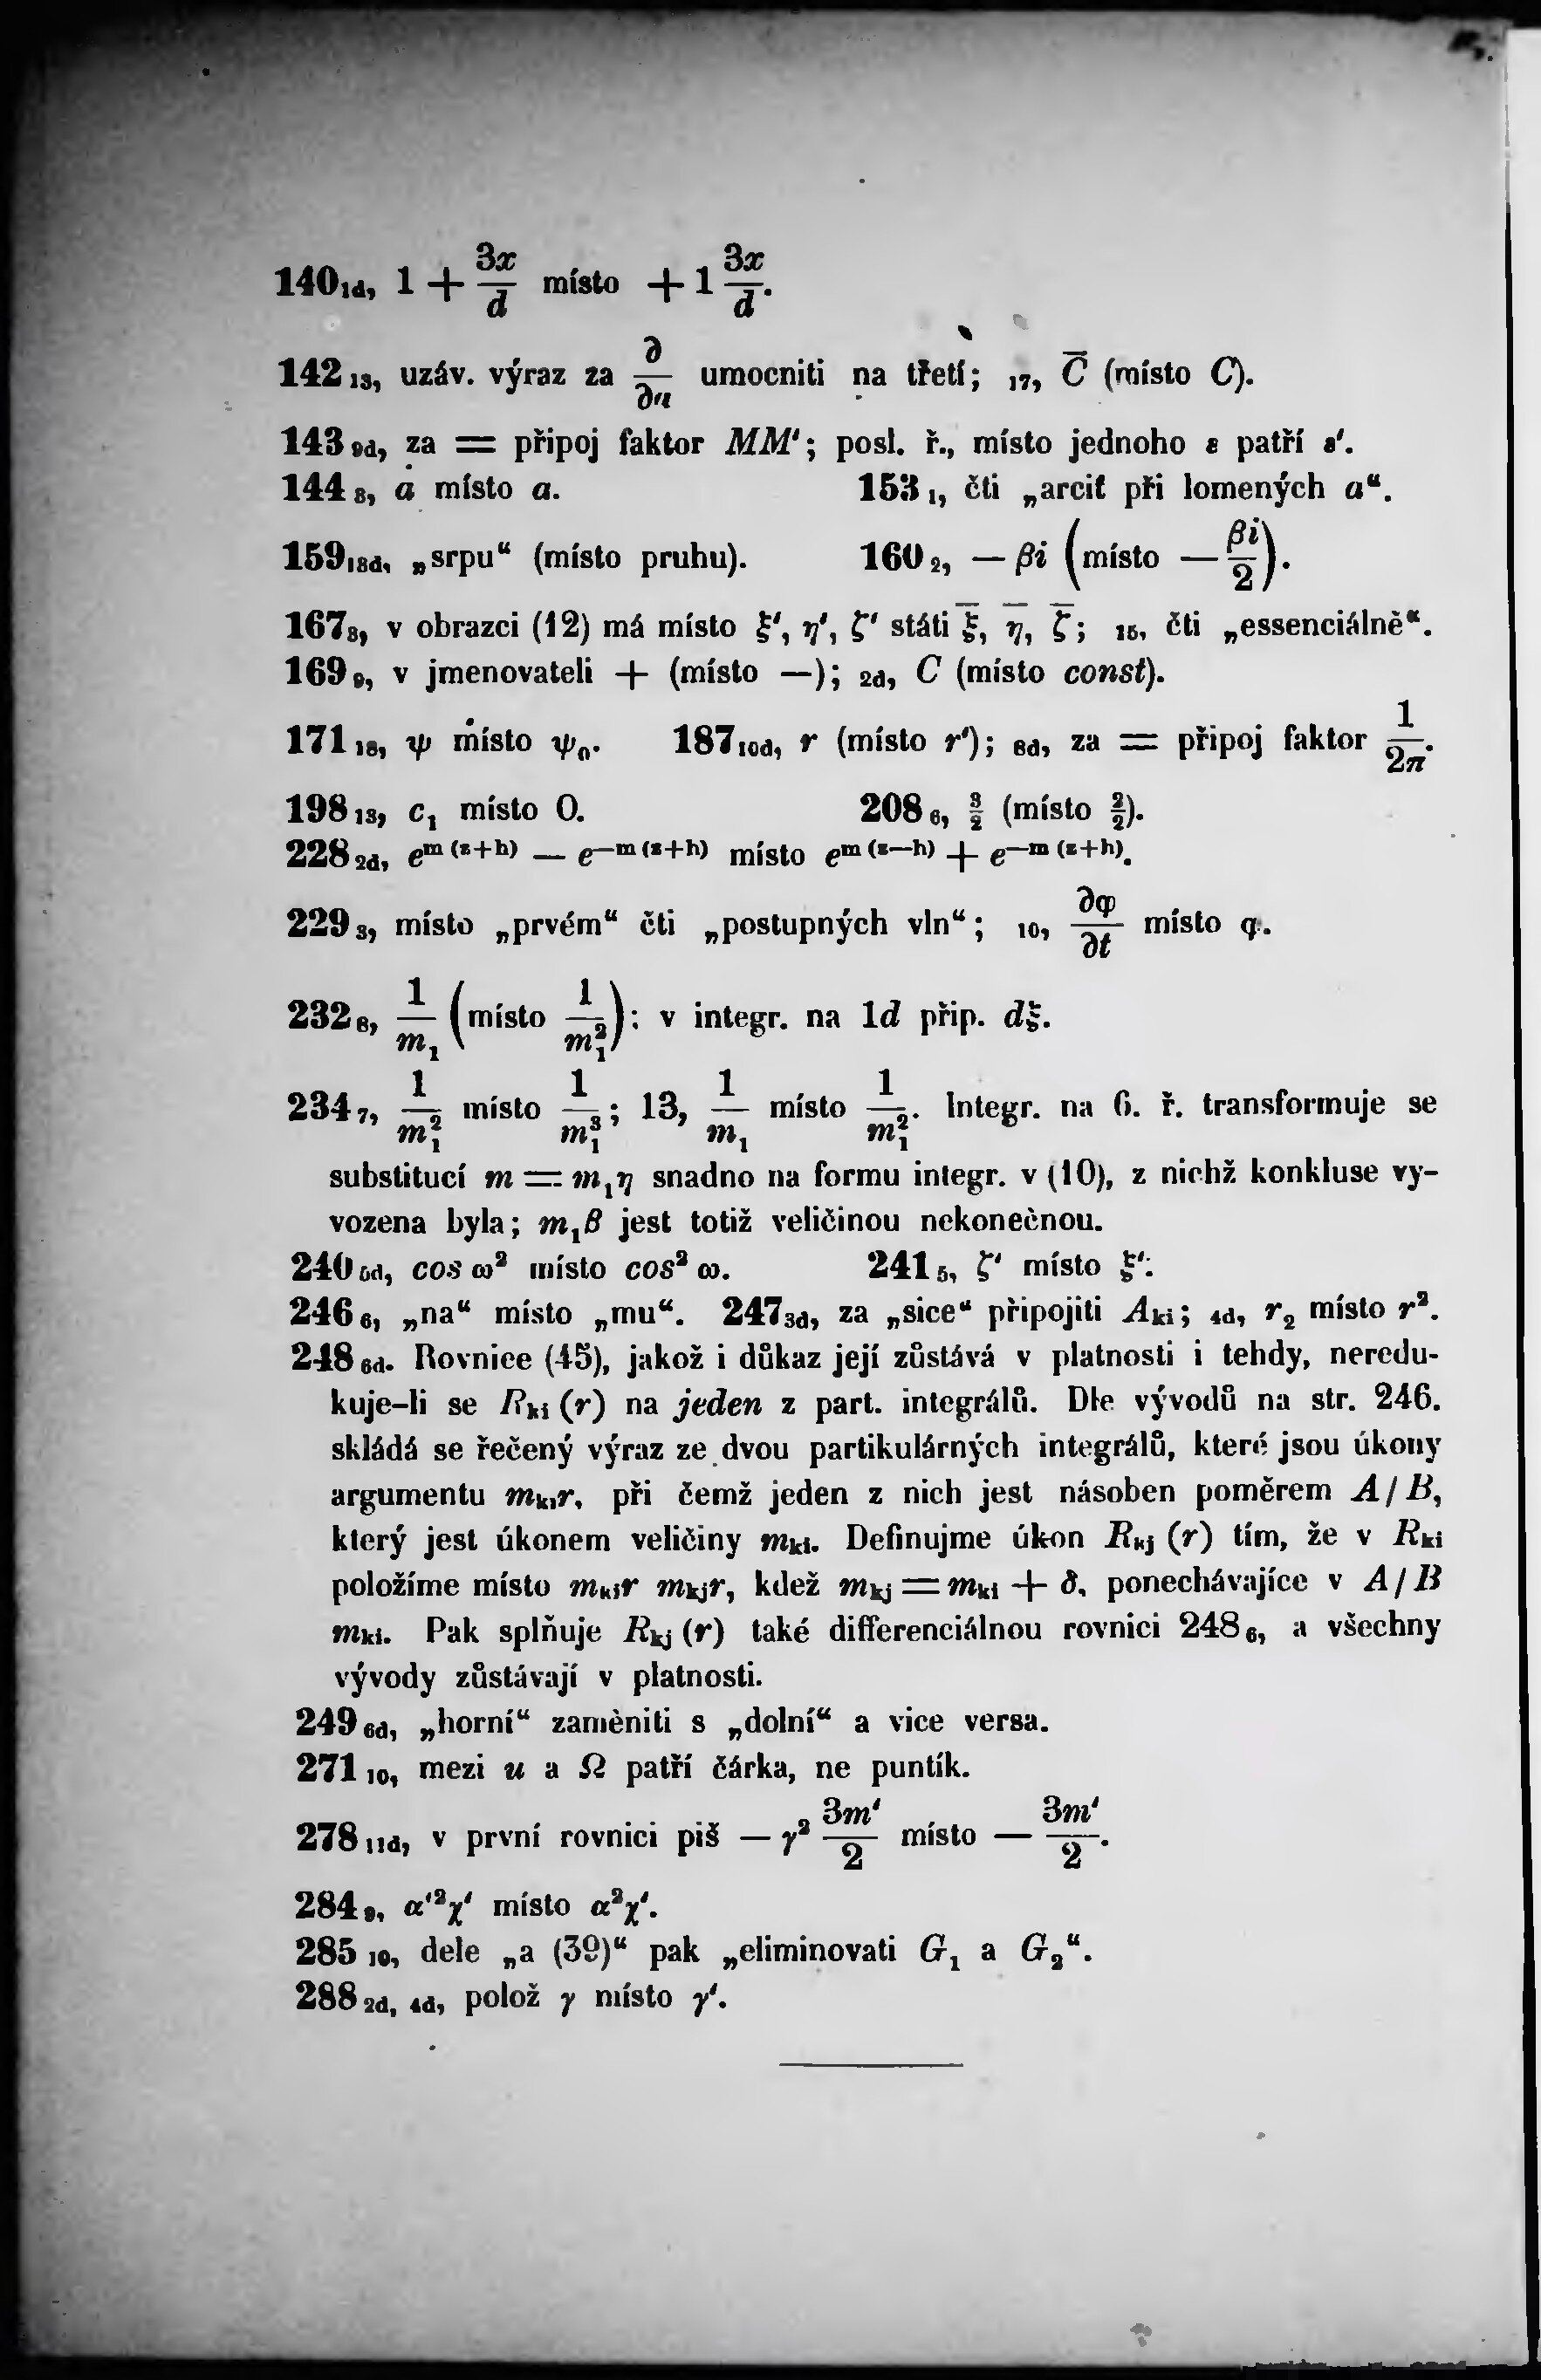 140₁d, 1 + 3x/d místo + 1 3x/d.
142₁₃, uzáv. výraz za ∂/∂a umocniti na třetí; ₁₇, C̅ (místo C).
143₉d, za = připoj faktor MM'; posl. ř., místo jednoho ε patří ε'.
144₈, a̅ místo a. 153₁, čti „arciť při lomených a“.
159₁₈d, „srpu“ (místo pruhu). 160₂, — βi (místo — βi/2).
167₈, v obrazci (12) má místo ξ', η', ζ' státi ξ̅, η̅, ζ̅; ₁₅, čti „essenciálně“.
169₉, v jmenovateli + (místo —); ₂d, C (místo const).
171₁₈, ψ místo ψ₀. 187₁₀d, r (místo r'); ₈d, za = připoj faktor 1/2π.
198₁₃, c₁ místo 0. 208₆, 3/2 (místo 2/2).
228₂d, e^m(z+h) — e^—m(z+h) místo e^m(z—h) + e^—m(z+h).
229₃, místo „prvém“ čti „postupných vln“; ₁₀, ∂φ/∂t místo φ.
232₈, 1/m₁ (místo 1/m₁²); v integr. na 1d přip. dξ.
234₇, 1/m₁² místo 1/m₁³; 13, 1/m₁ místo 1/m₁². Integr. na 6. ř. transformuje se
substitucí m = m₁η snadno na formu integr. v (10), z nichž konkluse vy-
vozena byla; m₁β jest totiž veličinou nekonečnou.
240₅d, cos ω² místo cos² ω. 241₅, ζ' místo ξ'.
246₆, „na“ místo „mu“. 247₃d, za „sice“ připojiti Aₖᵢ; ₄d, r₂ místo r².
248₆d. Rovnice (45), jakož i důkaz její zůstává v platnosti i tehdy, neredu-
kuje-li se Rₖᵢ (r) na jeden z part. integrálů. Dle vývodů na str. 246.
skládá se řečený výraz ze dvou partikulárných integrálů, které jsou úkony
argumentu mₖᵢr, při čemž jeden z nich jest násoben poměrem A / B,
který jest úkonem veličiny mₖᵢ. Definujme úkon Rₖⱼ (r) tím, že v Rₖᵢ
položíme místo mₖᵢr mₖⱼr, kdež mₖⱼ = mₖᵢ + δ, ponechávajíce v A / B
mₖᵢ. Pak splňuje Rₖⱼ (r) také differenciálnou rovnici 248₆, a všechny
vývody zůstávají v platnosti.
249₆d, „horní“ zaměniti s „dolní“ a vice versa.
271₁₀, mezi u a Ω patří čárka, ne puntík.
278₁₁d, v první rovnici piš — γ² 3m'/2 místo — 3m'/2.
284₉, α'²χ' místo α²χ'.
285₁₀, dele „a (39)“ pak „eliminovati G₁ a G₂“.
288₂d, ₄d, polož γ místo γ'.